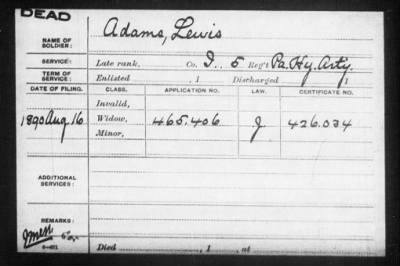 DEAD
NAME OF SOLDIER: Adams, Lewis
SERVICE: Late rank, Co. I., 5 Reg't Pa. Hy. Arty.
TERM OF SERVICE: Enlisted , 1 Discharged 1
DATE OF FILING. CLASS. APPLICATION NO. LAW. CERTIFICATE NO.
Invalid,
1890 Aug 16 Widow, 465.406 J. 426.034
Minor,
ADDITIONAL SERVICES:
REMARKS:
Died , 1 , at